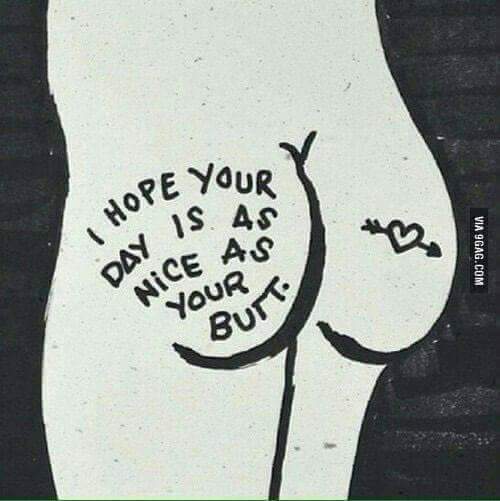 I HOPE YOUR
DAY IS AS
NICE AS
YOUR
BUTT.
VIA 9GAG.COM